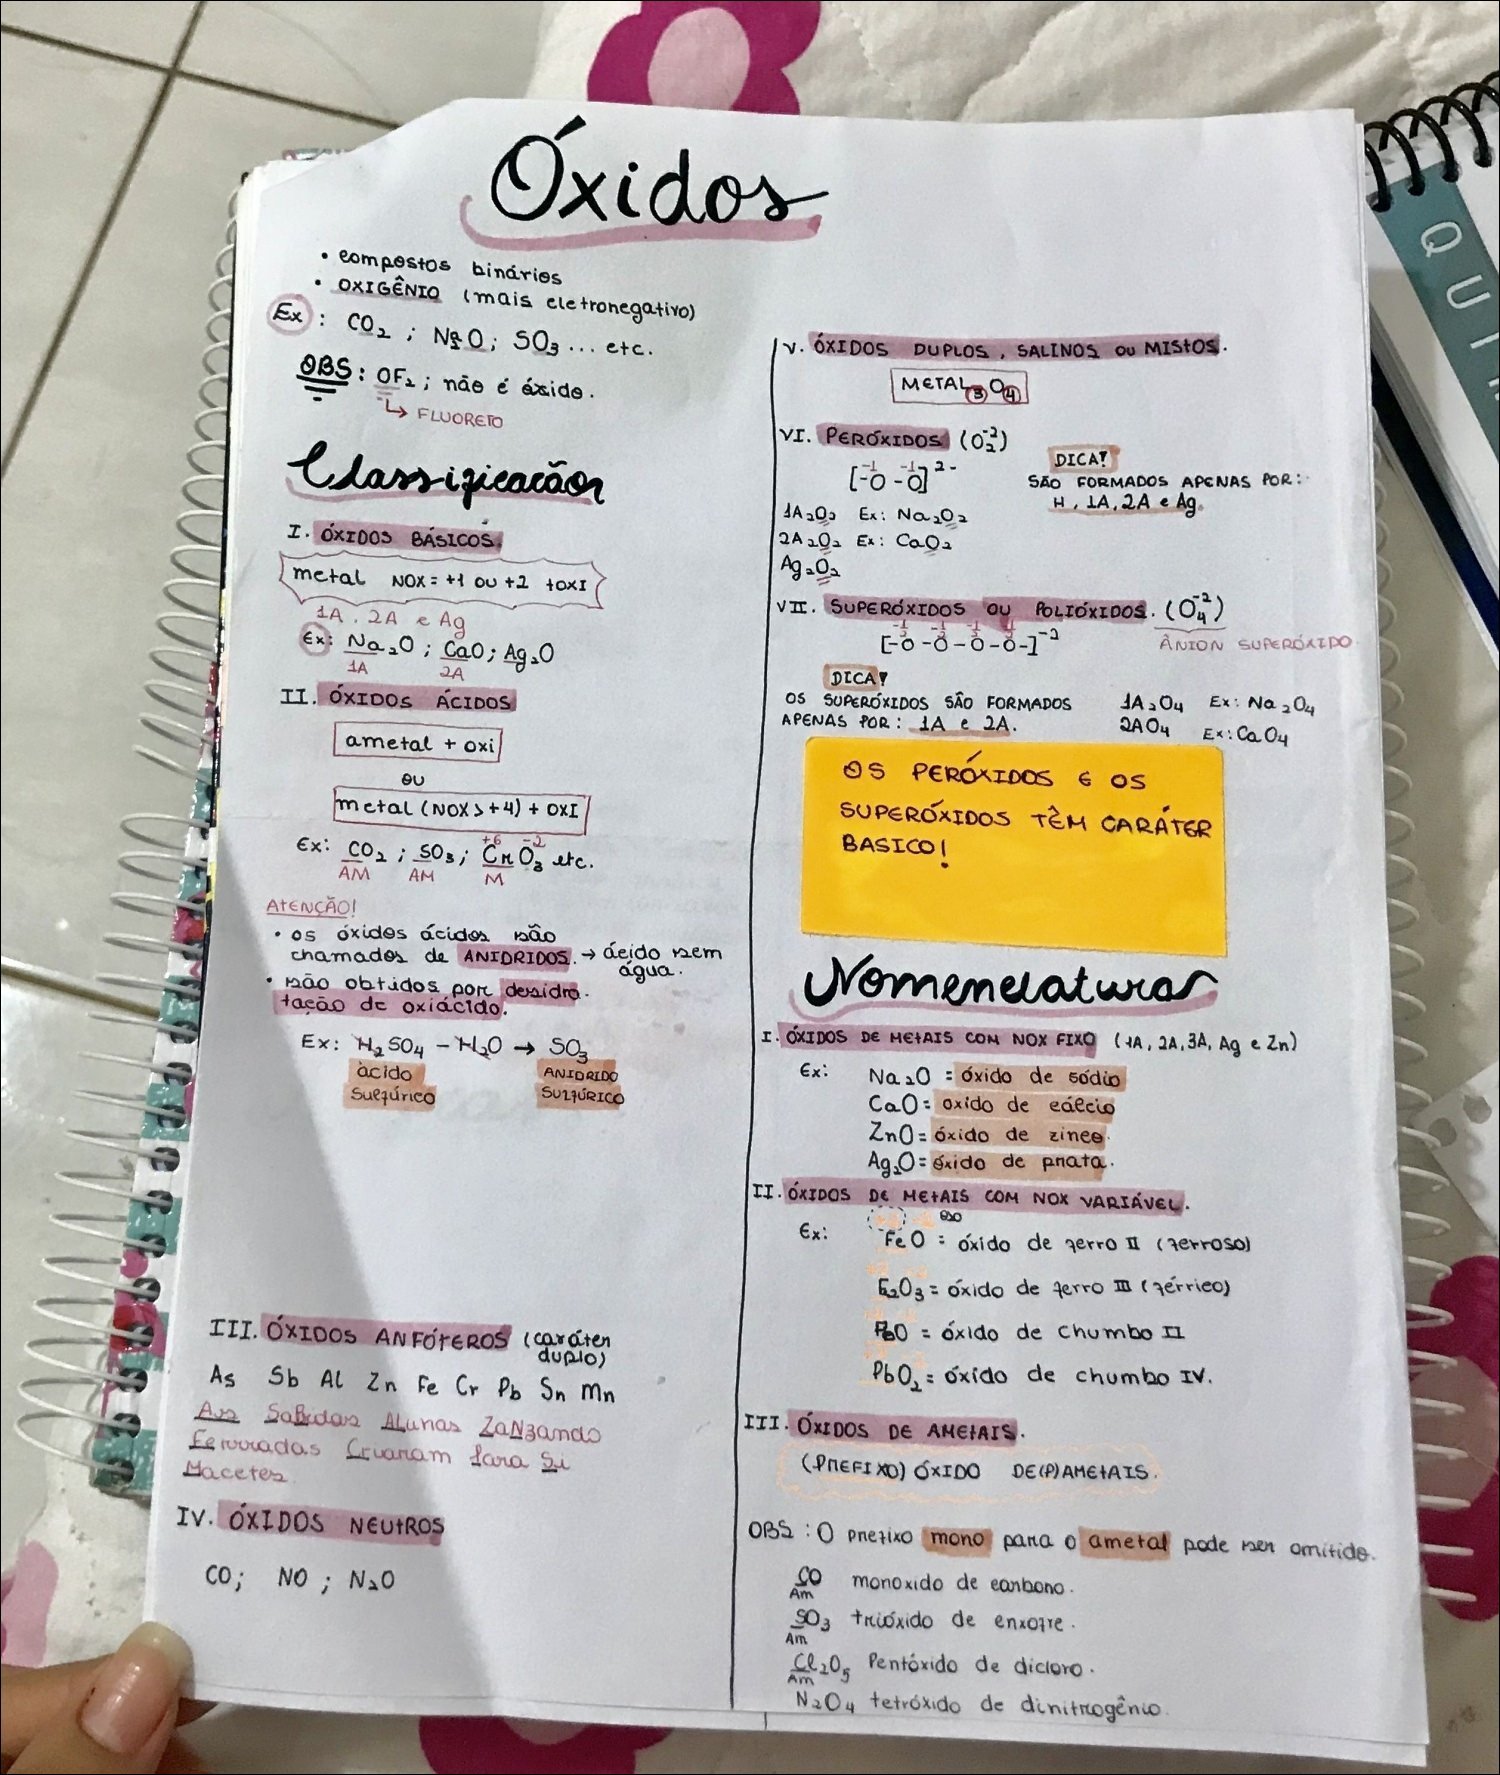 Óxidos
• compostos binários
• OXIGÊNIO (mais eletronegativo)
Ex: CO2 ; N2O; SO3 ... etc.
OBS: OF2; não é óxido.
↳ FLUORETO
Classificação
I. ÓXIDOS BÁSICOS.
metal NOX= +1 ou +2 +OXI
1A, 2A e Ag
Ex: Na2O ; CaO; Ag2O
1A 2A
II. ÓXIDOS ÁCIDOS
ametal + oxi
ou
metal (NOX > +4) + OXI
+6 -2
Ex: CO2 ; SO3; CrO3 etc.
AM AM M
ATENÇÃO!
• os óxidos ácidos são
chamados de ANIDRIDOS. → ácido sem
água.
• são obtidos por desidra-
tação de oxiácido.
Ex: H2SO4 - H2O → SO3
ácido ANIDRIDO
sulfúrico SULFÚRICO
III. ÓXIDOS ANFÓTEROS (caráter
duplo)
As Sb Al Zn Fe Cr Pb Sn Mn
As Sabidas Alunas ZaNzando
Ferradas Criaram Para Si
Macetes
IV. ÓXIDOS NEUTROS
CO; NO ; N2O
V. ÓXIDOS DUPLOS, SALINOS OU MISTOS.
METAL3 O4
VI. PERÓXIDOS (O2-2)
-1 -1
[-O -O]2-
DICA!
SÃO FORMADOS APENAS POR:
H, 1A, 2A e Ag.
1A2O2 Ex: Na2O2
2A2O2 Ex: CaO2
Ag2O2
VII. SUPERÓXIDOS OU POLIÓXIDOS. (O4-2)
[-O -O -O -O-]-2 ÂNION SUPERÓXIDO.
DICA!
OS SUPERÓXIDOS SÃO FORMADOS
APENAS POR: 1A e 2A.
1A2O4 Ex: Na2O4
2AO4 Ex: CaO4
OS PERÓXIDOS E OS
SUPERÓXIDOS TÊM CARÁTER
BASICO!
Nomenclatura
I. ÓXIDOS DE METAIS COM NOX FIXO (1A, 2A, 3A, Ag e Zn)
Ex: Na2O = óxido de sódio
CaO= oxido de cálcio
ZnO= óxido de zinco.
Ag2O= óxido de prata.
II. ÓXIDOS DE METAIS COM NOX VARIÁVEL.
oso
Ex: FeO = óxido de ferro II (ferroso)
Fe2O3 = óxido de ferro III (férrico)
PbO = óxido de chumbo II
PbO2 = óxido de chumbo IV.
III. ÓXIDOS DE AMETAIS.
(PREFIXO) ÓXIDO DE(P)AMETAIS.
OBS : O prefixo mono para o ametal pode ser omitido.
CO monoxido de carbono.
Am
SO3 trióxido de enxofre.
Am
Cl2O5 Pentóxido de dicloro.
Am
N2O4 tetróxido de dinitrogênio.
QUI